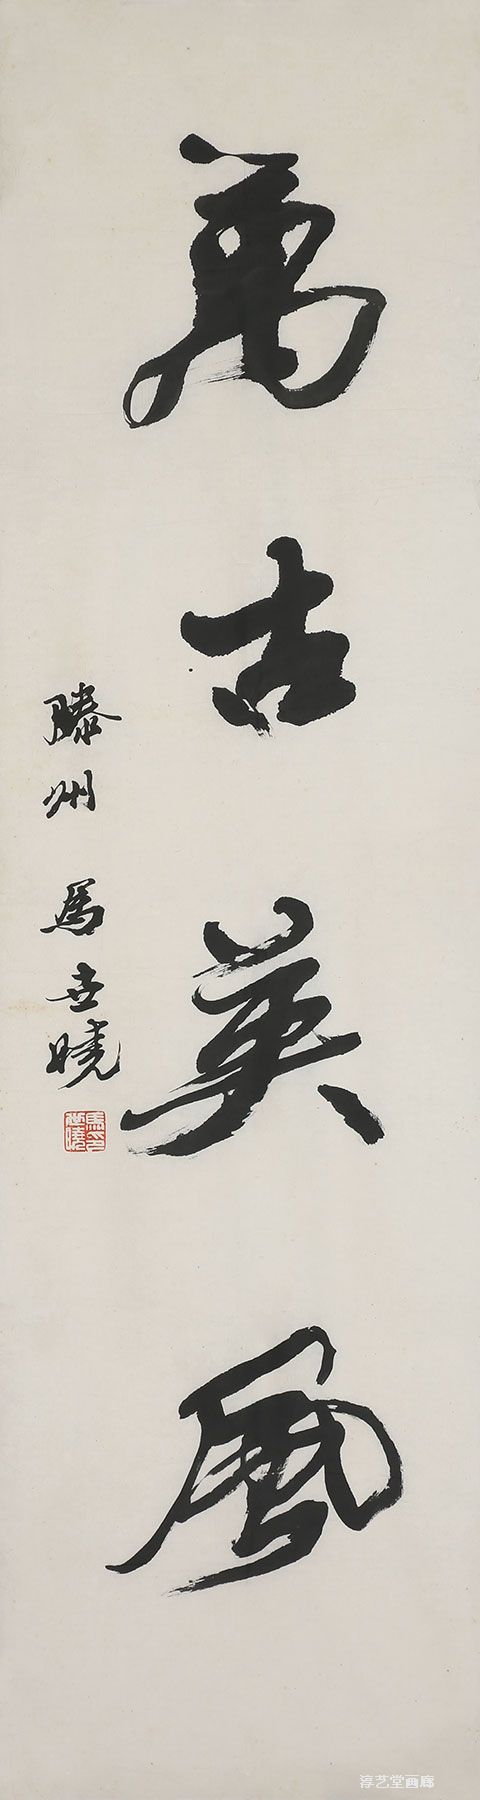 萬古英風
滕州 馬世曉
馬世曉印
淳艺堂画廊